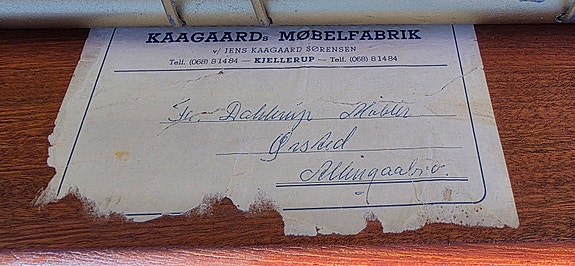 KAAGAARDs MØBELFABRIK
v/ JENS KAAGAARD SØRENSEN
Telf. (068) 8 14 84 — KJELLERUP — Telf. (068) 8 14 84
Fa. Dahlerup Møbler
Ørsted
Allingaabro.